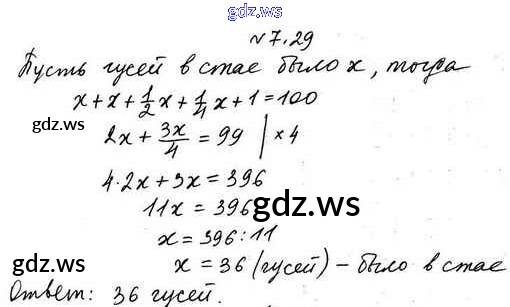 gdz.ws
№ 7.29
Пусть гусей в стае было x, тогда
x + x + 1/2 x + 1/4 x + 1 = 100
gdz.ws
2x + 3x/4 = 99 | × 4
4·2x + 3x = 396
11x = 396
gdz.ws
x = 396 : 11
gdz.ws
x = 36 (гусей) – было в стае
Ответ: 36 гусей.
gdz.ws